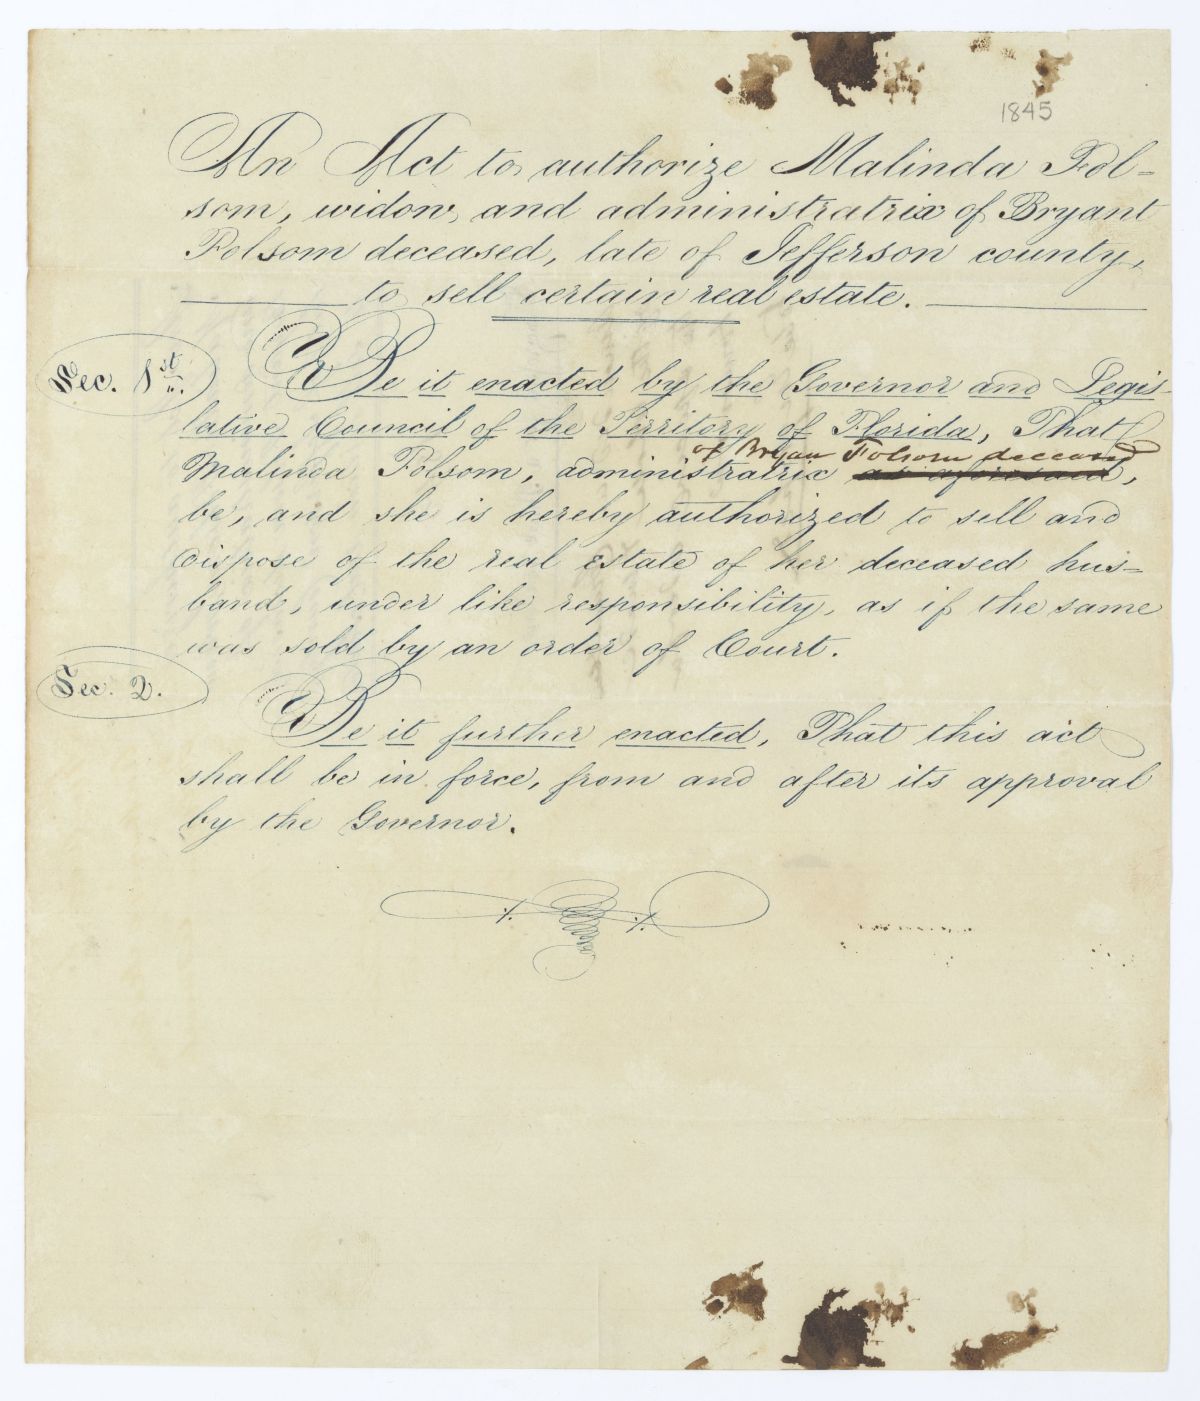 1845
An Act to authorize Malinda Fol=
som, widow, and administratrix of Bryant
Folsom deceased, late of Jefferson county,
to sell certain real estate.
Sec. 1st. Be it enacted by the Governor and Legis-
lative Council of the Territory of Florida, That
of Bryan Folsom deceased
Malinda Folsom, administratrix as aforesaid,
be, and she is hereby authorized to sell and
dispose of the real estate of her deceased hus=
band, under like responsibility, as if the same
was sold by an order of Court.
Sec. 2. Be it further enacted, That this act
shall be in force, from and after its approval
by the Governor.